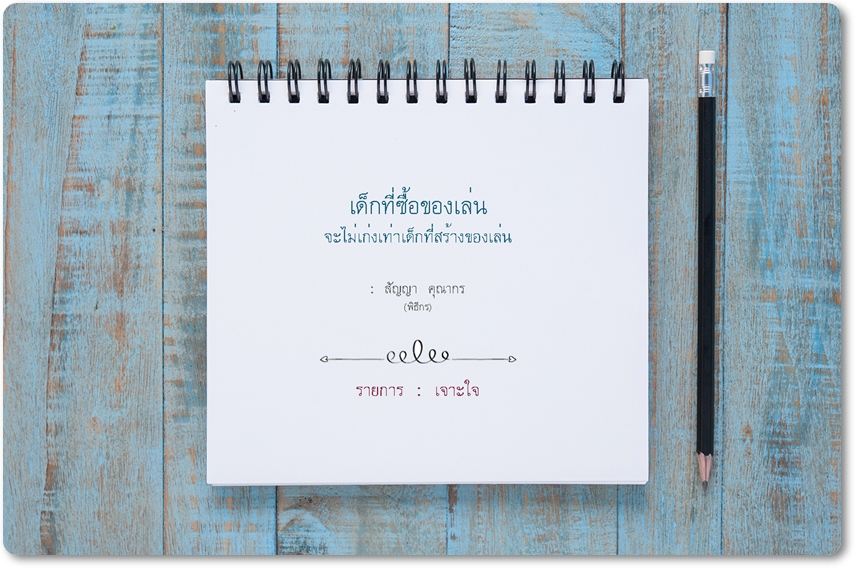 เด็กที่ซื้อของเล่น
จะไม่เก่งเท่าเด็กที่สร้างของเล่น
: สัญญา คุณากร
(พิธีกร)
รายการ : เจาะใจ